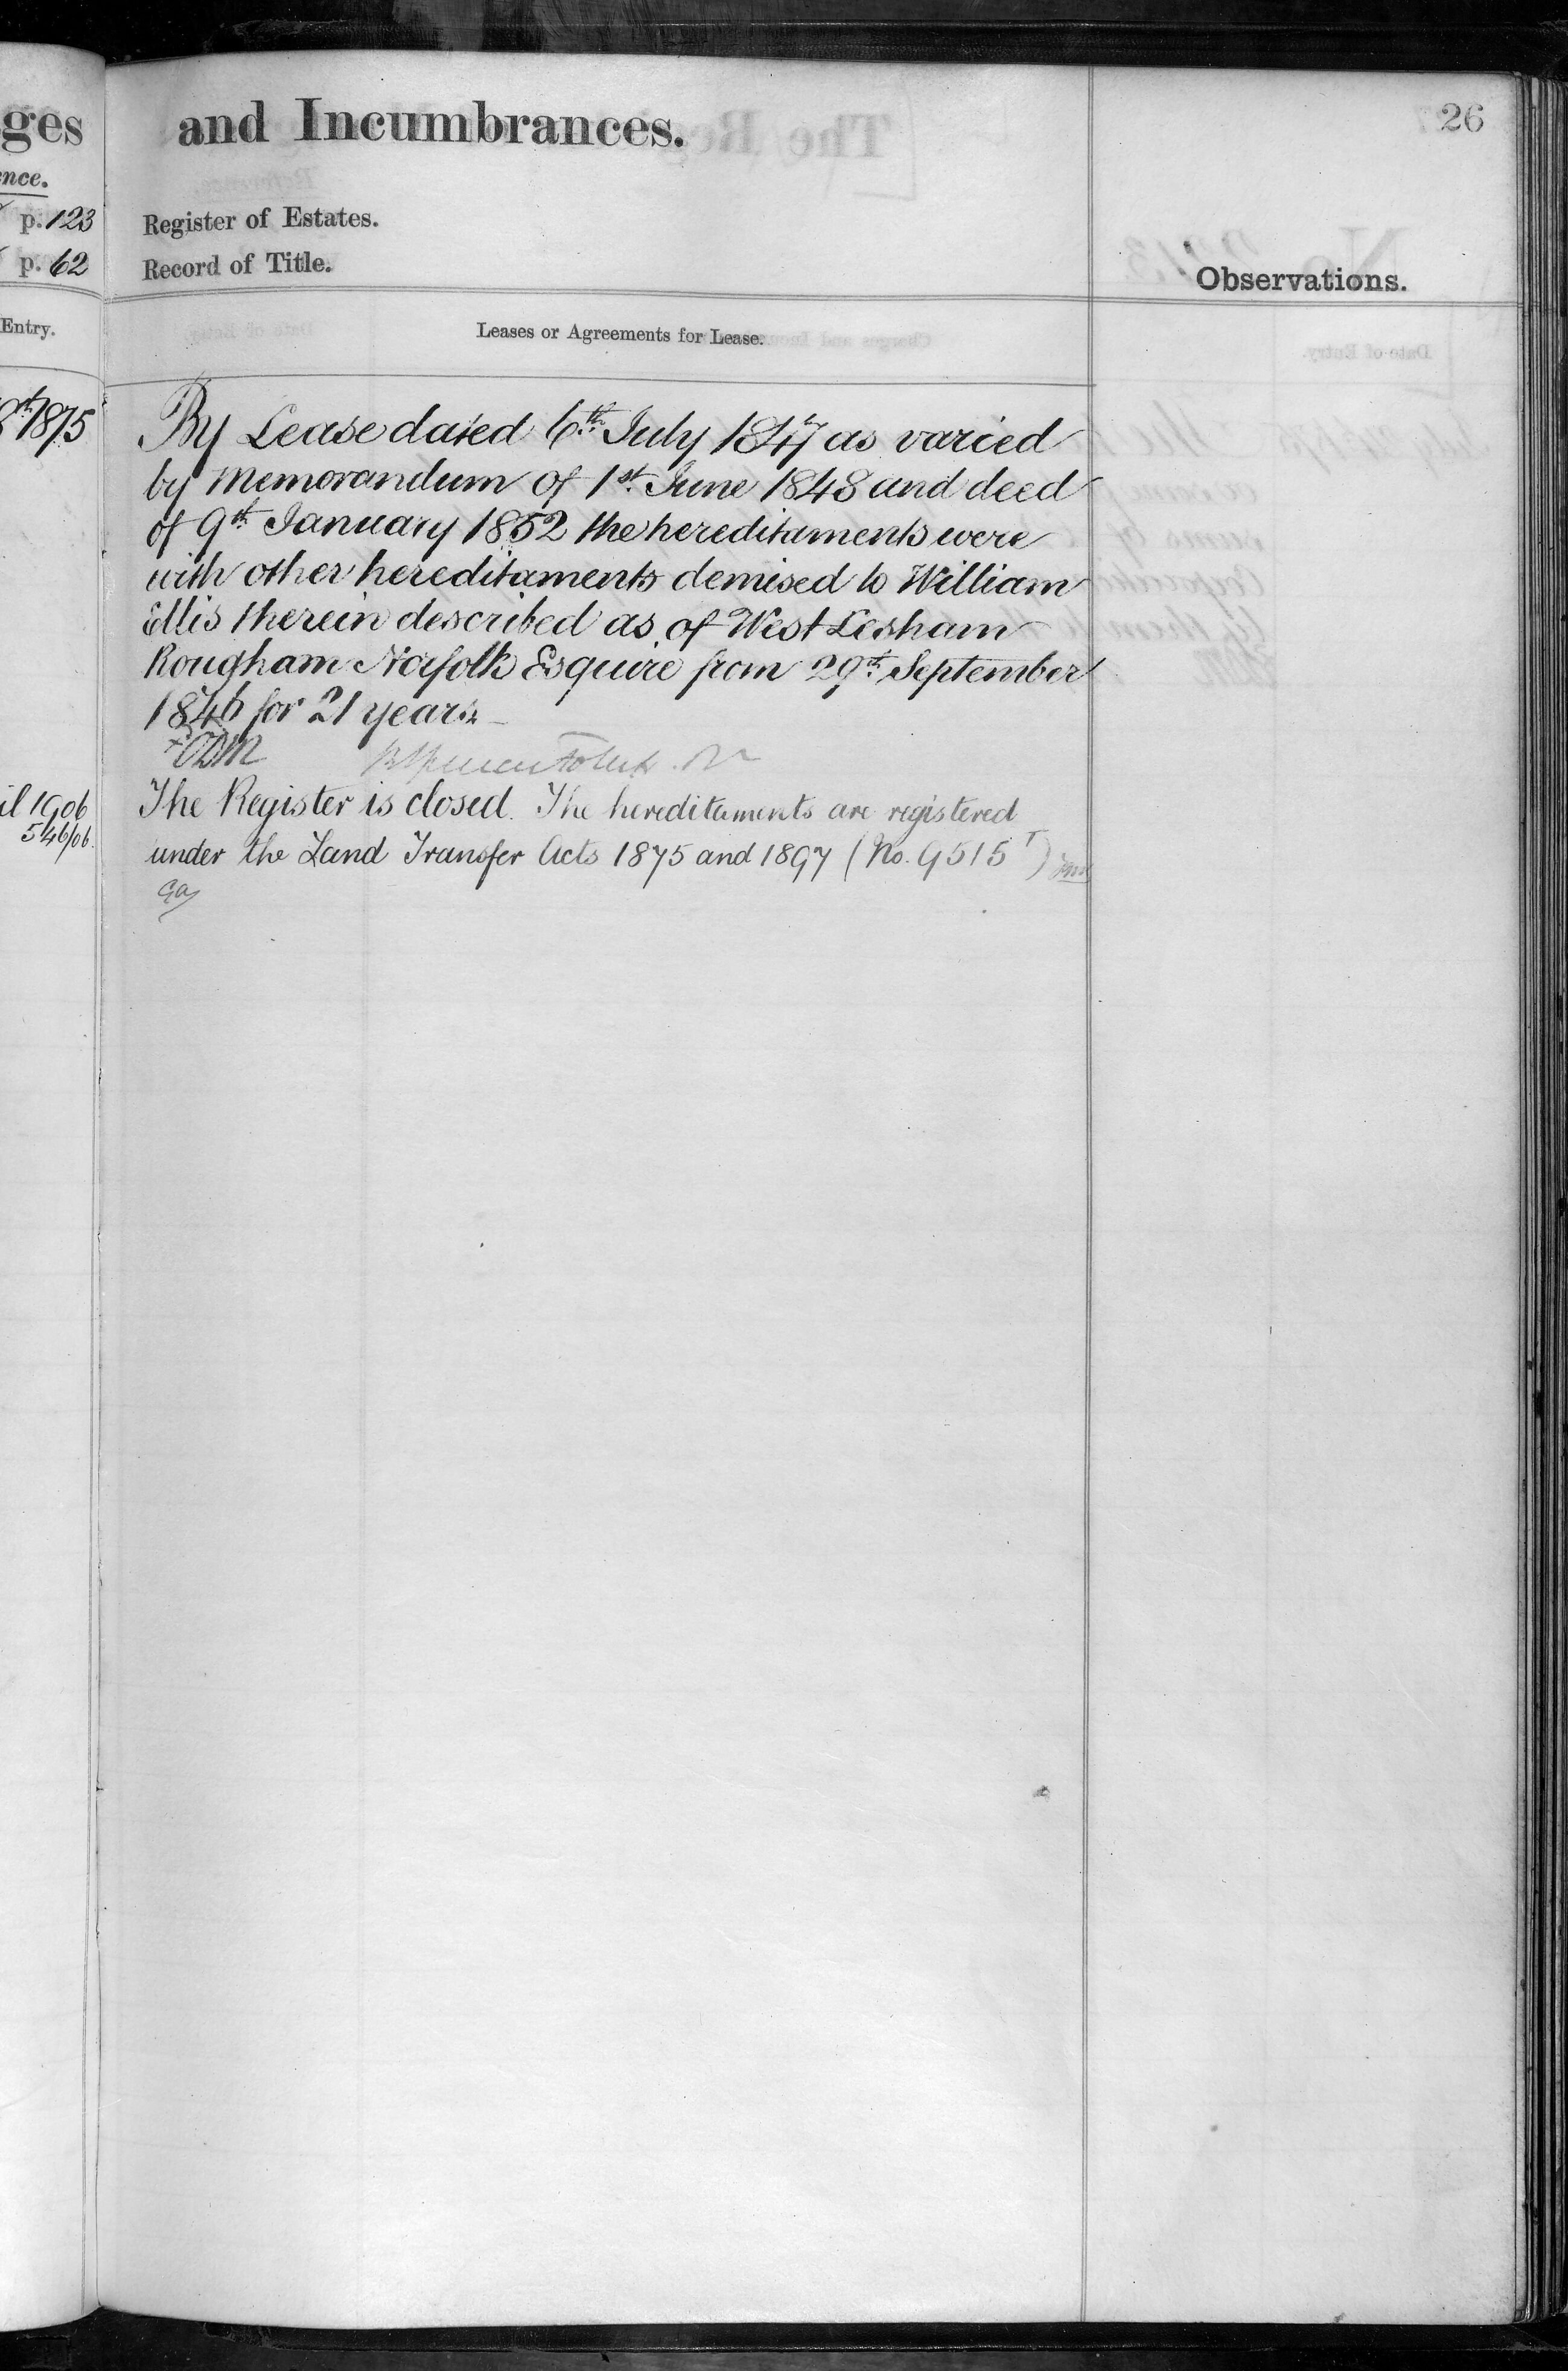 ges
and Incumbrances.
26
ence.
p. 123
Register of Estates.
p. 62
Record of Title.
Observations.
Entry.
Leases or Agreements for Lease.
1875
By Lease dated 6th July 1847 as varied
by Memorandum of 1st June 1848 and deed
of 9th January 1852 the hereditaments were
with other hereditaments demised to William
Ellis therein described as of West Lexham
Rougham Norfolk Esquire from 29th September
1846 for 21 years
The Register is closed. The hereditaments are registered
il 1906
546/06.
under the Land Transfer Acts 1875 and 1897 (No. 9515 T)